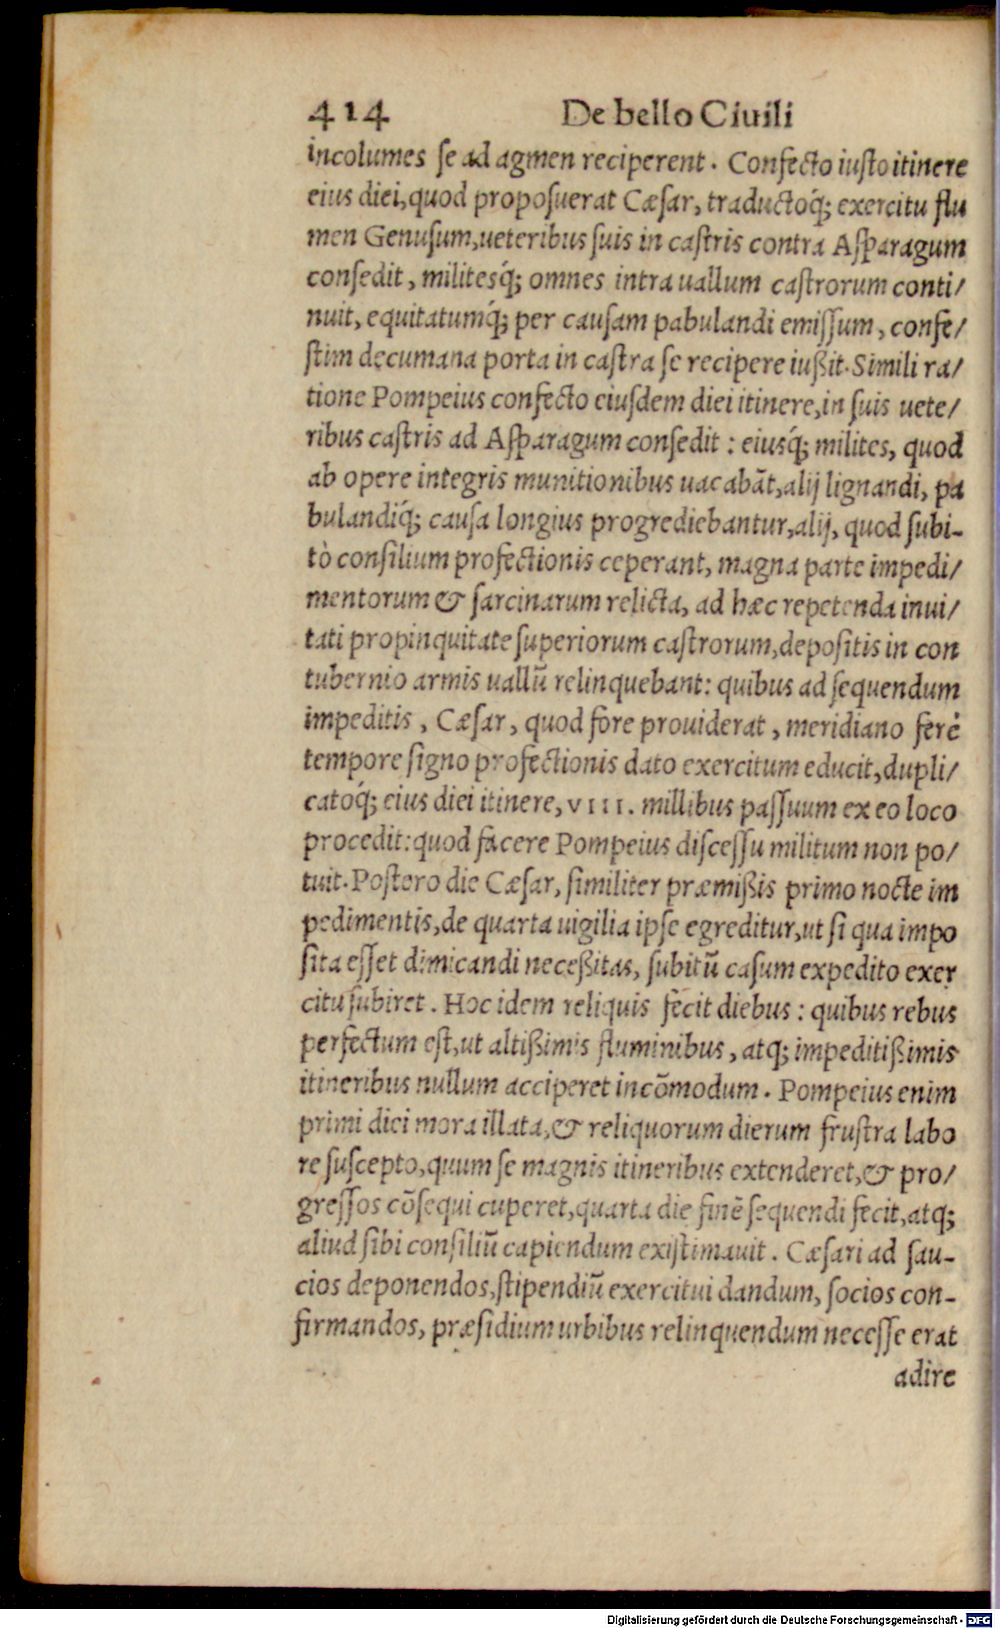 414 De bello Ciuili
incolumes ſe ad agmen reciperent. Confecto iuſto itinere
eius diei, quod propoſuerat Cæſar, traductoq́; exercitu flu
men Genuſum, ueteribus ſuis in caſtris contra Aſparagum
conſedit, militesq́; omnes intra uallum caſtrorum conti/
nuit, equitatumq́; per cauſam pabulandi emiſſum, confe/
ſtim decumana porta in caſtra ſe recipere iußit. Simili ra/
tione Pompeius confecto eiuſdem diei itinere, in ſuis uete/
ribus caſtris ad Aſparagum conſedit: eiusq́; milites, quod
ab opere integris munitionibus uacabāt, alij lignandi, pa
bulandiq́; cauſa longius progrediebantur, alij, quod ſubi-
tò conſilium profectionis ceperant, magna parte impedi/
mentorum & ſarcinarum relicta, ad hæc repetenda inui/
tati propinquitate ſuperiorum caſtrorum, depoſitis in con
tubernio armis uallū relinquebant: quibus ad ſequendum
impeditis, Cæſar, quod fore prouiderat, meridiano ferè
tempore ſigno profectionis dato exercitum educit, dupli/
catoq́; eius diei itinere, VIII. millibus paſſuum ex eo loco
procedit: quod facere Pompeius diſceſſu militum non po/
tuit. Poſtero die Cæſar, ſimiliter præmißis primo nocte im
pedimentis, de quarta uigilia ipſe egreditur, ut ſi qua impo
ſita eſſet dimicandi neceßitas, ſubitū caſum expedito exer
citu ſubiret. Hoc idem reliquis fecit diebus: quibus rebus
perfectum eſt, ut altißimis fluminibus, atq; impeditißimis
itineribus nullum acciperet incōmodum. Pompeius enim
primi diei mora illata, & reliquorum dierum fruſtra labo
re ſuſcepto, quum ſe magnis itineribus extenderet, & pro/
greſſos cōſequi cuperet, quarta die finē ſequendi fecit, atq;
aliud ſibi conſiliū capiendum exiſtimauit. Cæſari ad ſau-
cios deponendos, ſtipendiū exercitui dandum, ſocios con-
firmandos, præſidium urbibus relinquendum neceſſe erat
adire
Digitalisierung gefördert durch die Deutsche Forschungsgemeinschaft - DFG